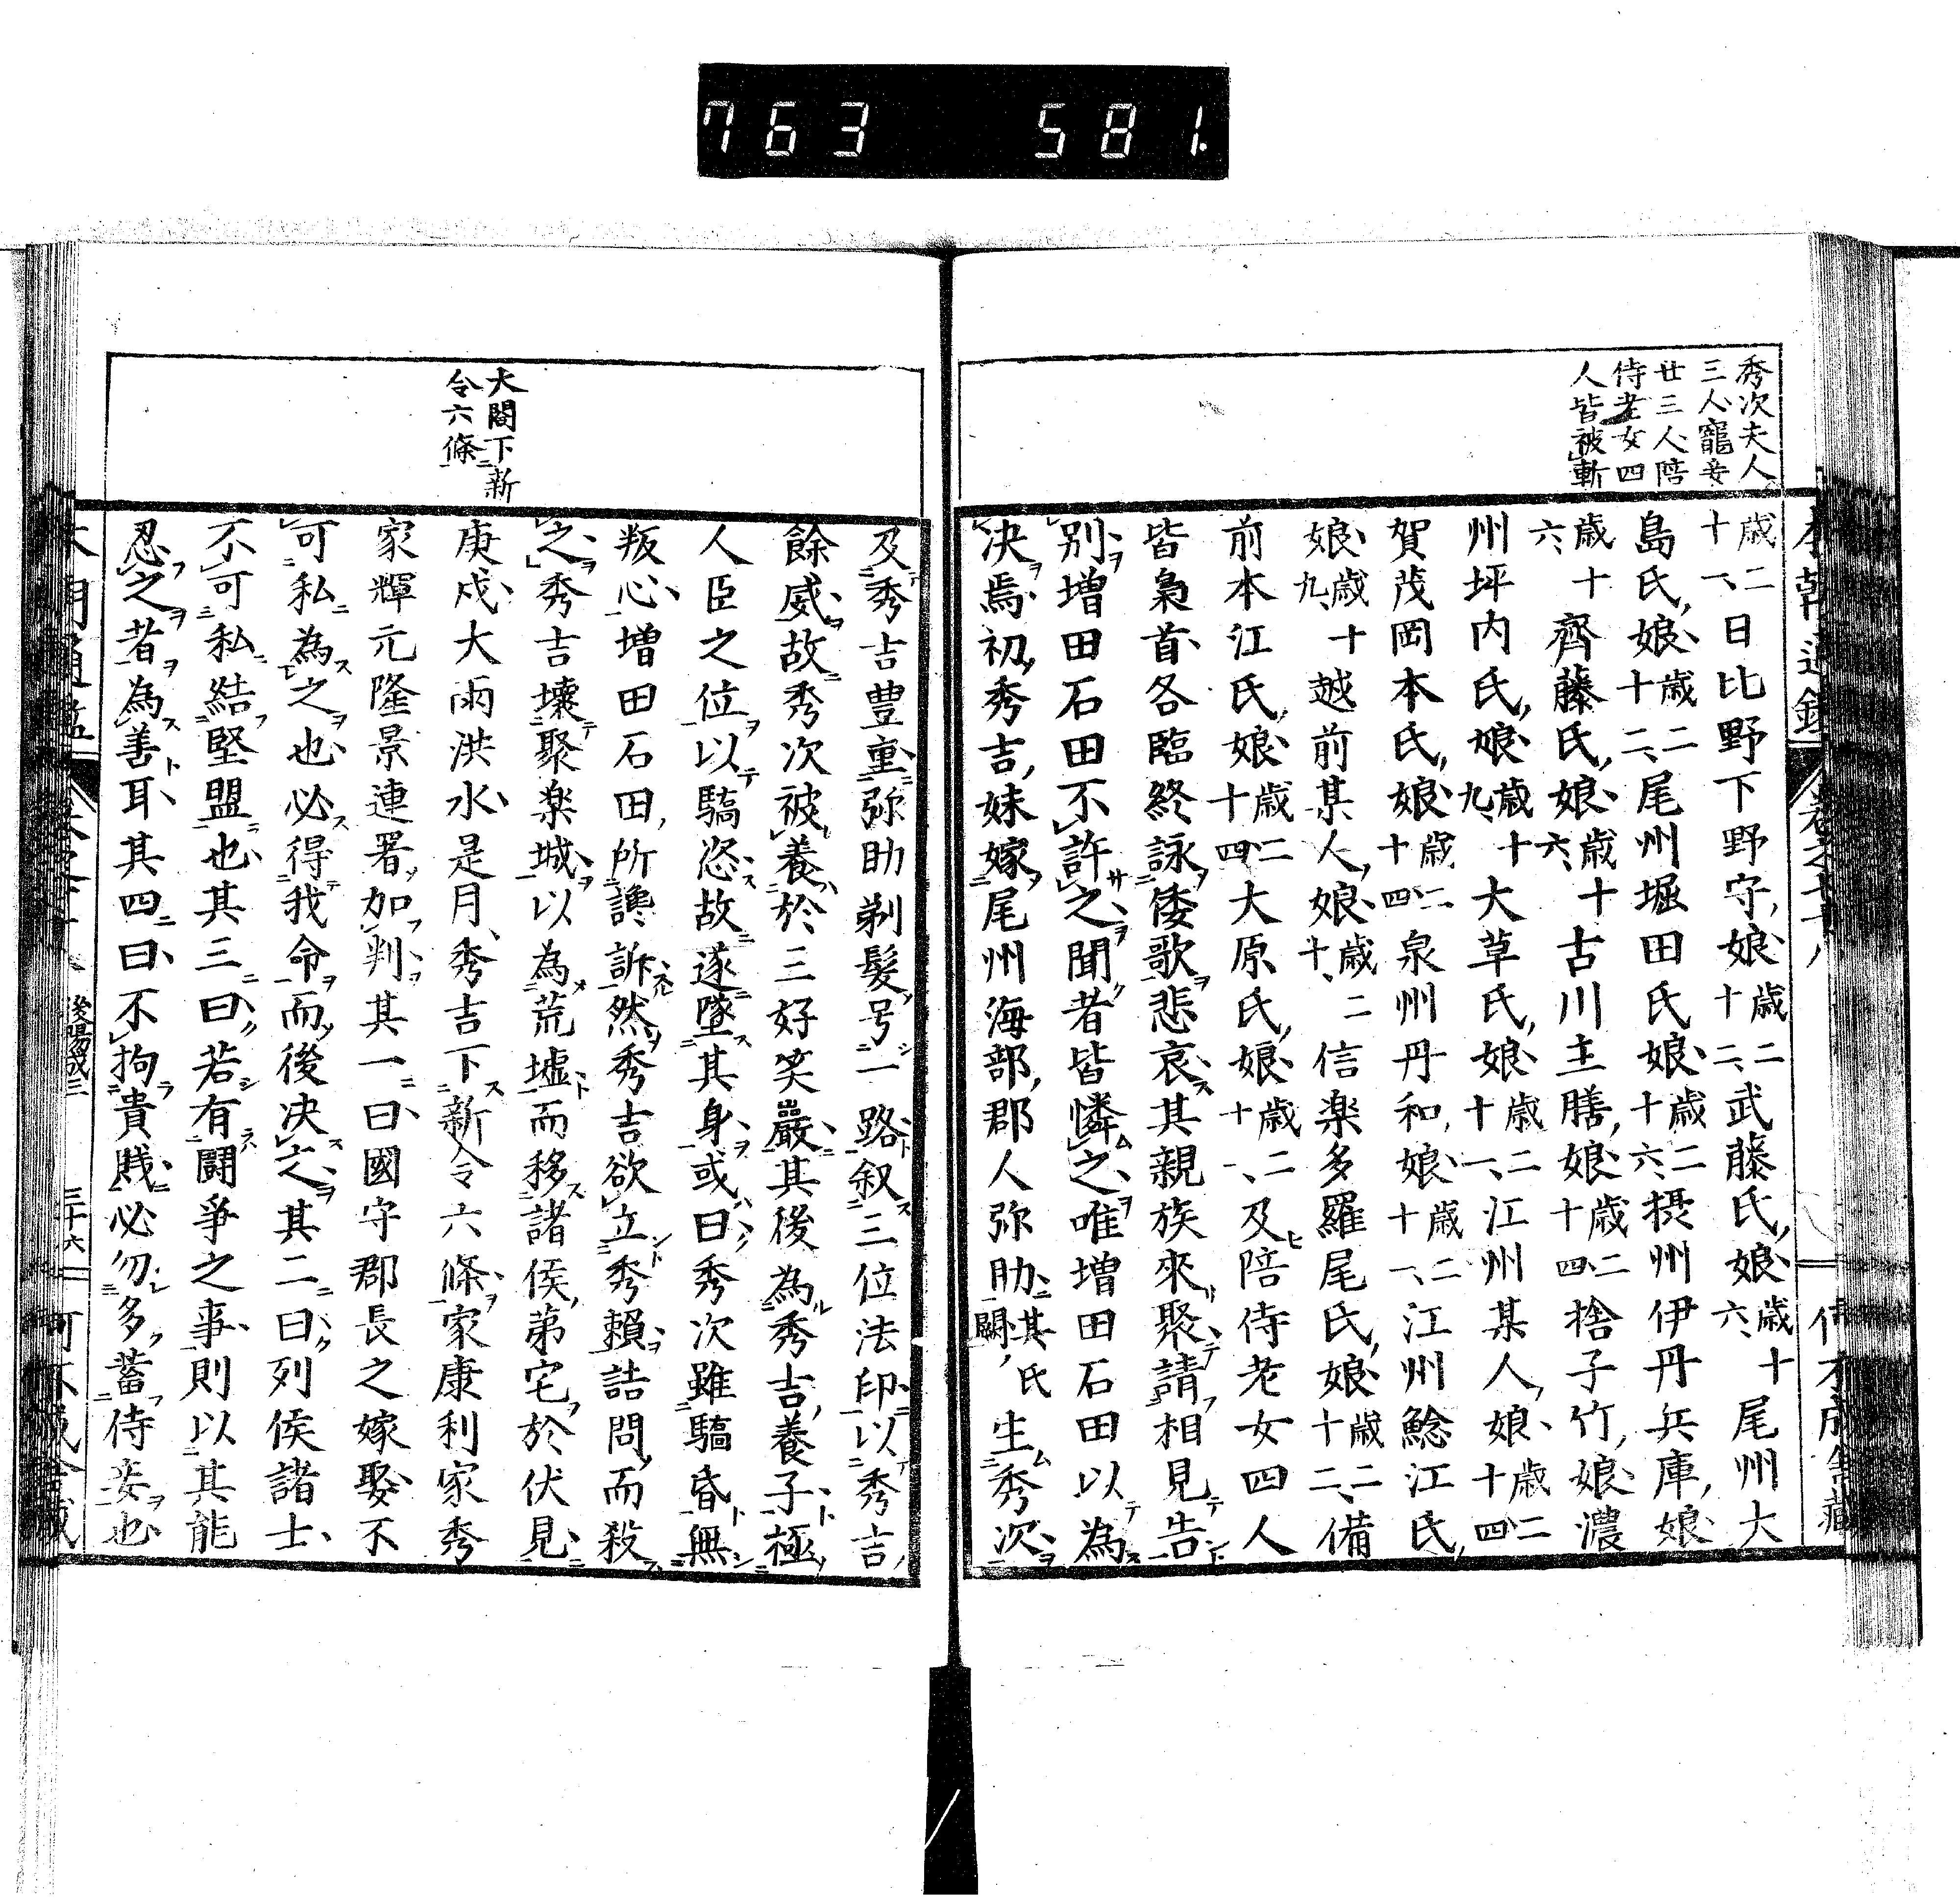 763 581.
秀次夫人
三人寵妾
廿三人陪
侍老女四
人皆被斬
歳二十一日比野下野守娘歳二十二武藤氏娘歳十六尾州大
島氏娘歳二十二尾州堀田氏娘歳二十六摂州伊丹兵庫娘
歳十六齊藤氏娘歳十六古川主膳娘歳二十四捨子竹娘濃
州坪内氏娘歳十九大草氏娘歳二十一江州某人娘歳二十四
賀茂岡本氏娘歳二十四泉州丹和娘歳二十一江州鯰江氏
娘歳十九越前某人娘歳二十信楽多羅尾氏娘歳二十二備
前本江氏娘歳二十四大原氏娘歳二十一及陪侍老女四人
皆梟首各臨終詠倭歌悲哀其親族來聚請相見告
別増田石田不許之聞者皆憐之唯増田石田以為
決焉初秀吉妹嫁尾州海部郡人弥助其氏闕生秀次
大閤下新
令六條
及秀吉豊重弥助剃髮号一路叙三位法印以秀吉
餘威故秀次被養於三好笑巖其後為秀吉養子極
人臣之位以驕恣故遂墜其身或曰秀次雖驕昏無
叛心増田石田所讒訴然秀吉欲立秀頼詰問而殺
之秀吉壊聚楽城以為荒墟而移諸侯弟宅於伏見
庚戌大雨洪水是月秀吉下新令六條家康利家秀
家輝元隆景連署加判其一曰國守郡長之嫁娶不
可私為之也必得我令而後决之其二曰列侯諸士
不可私結堅盟也其三曰若有闘爭之事則以其能
忍之者為善耳其四曰不拘貴賎必勿多蓄侍妾也
後陽成三
三十六